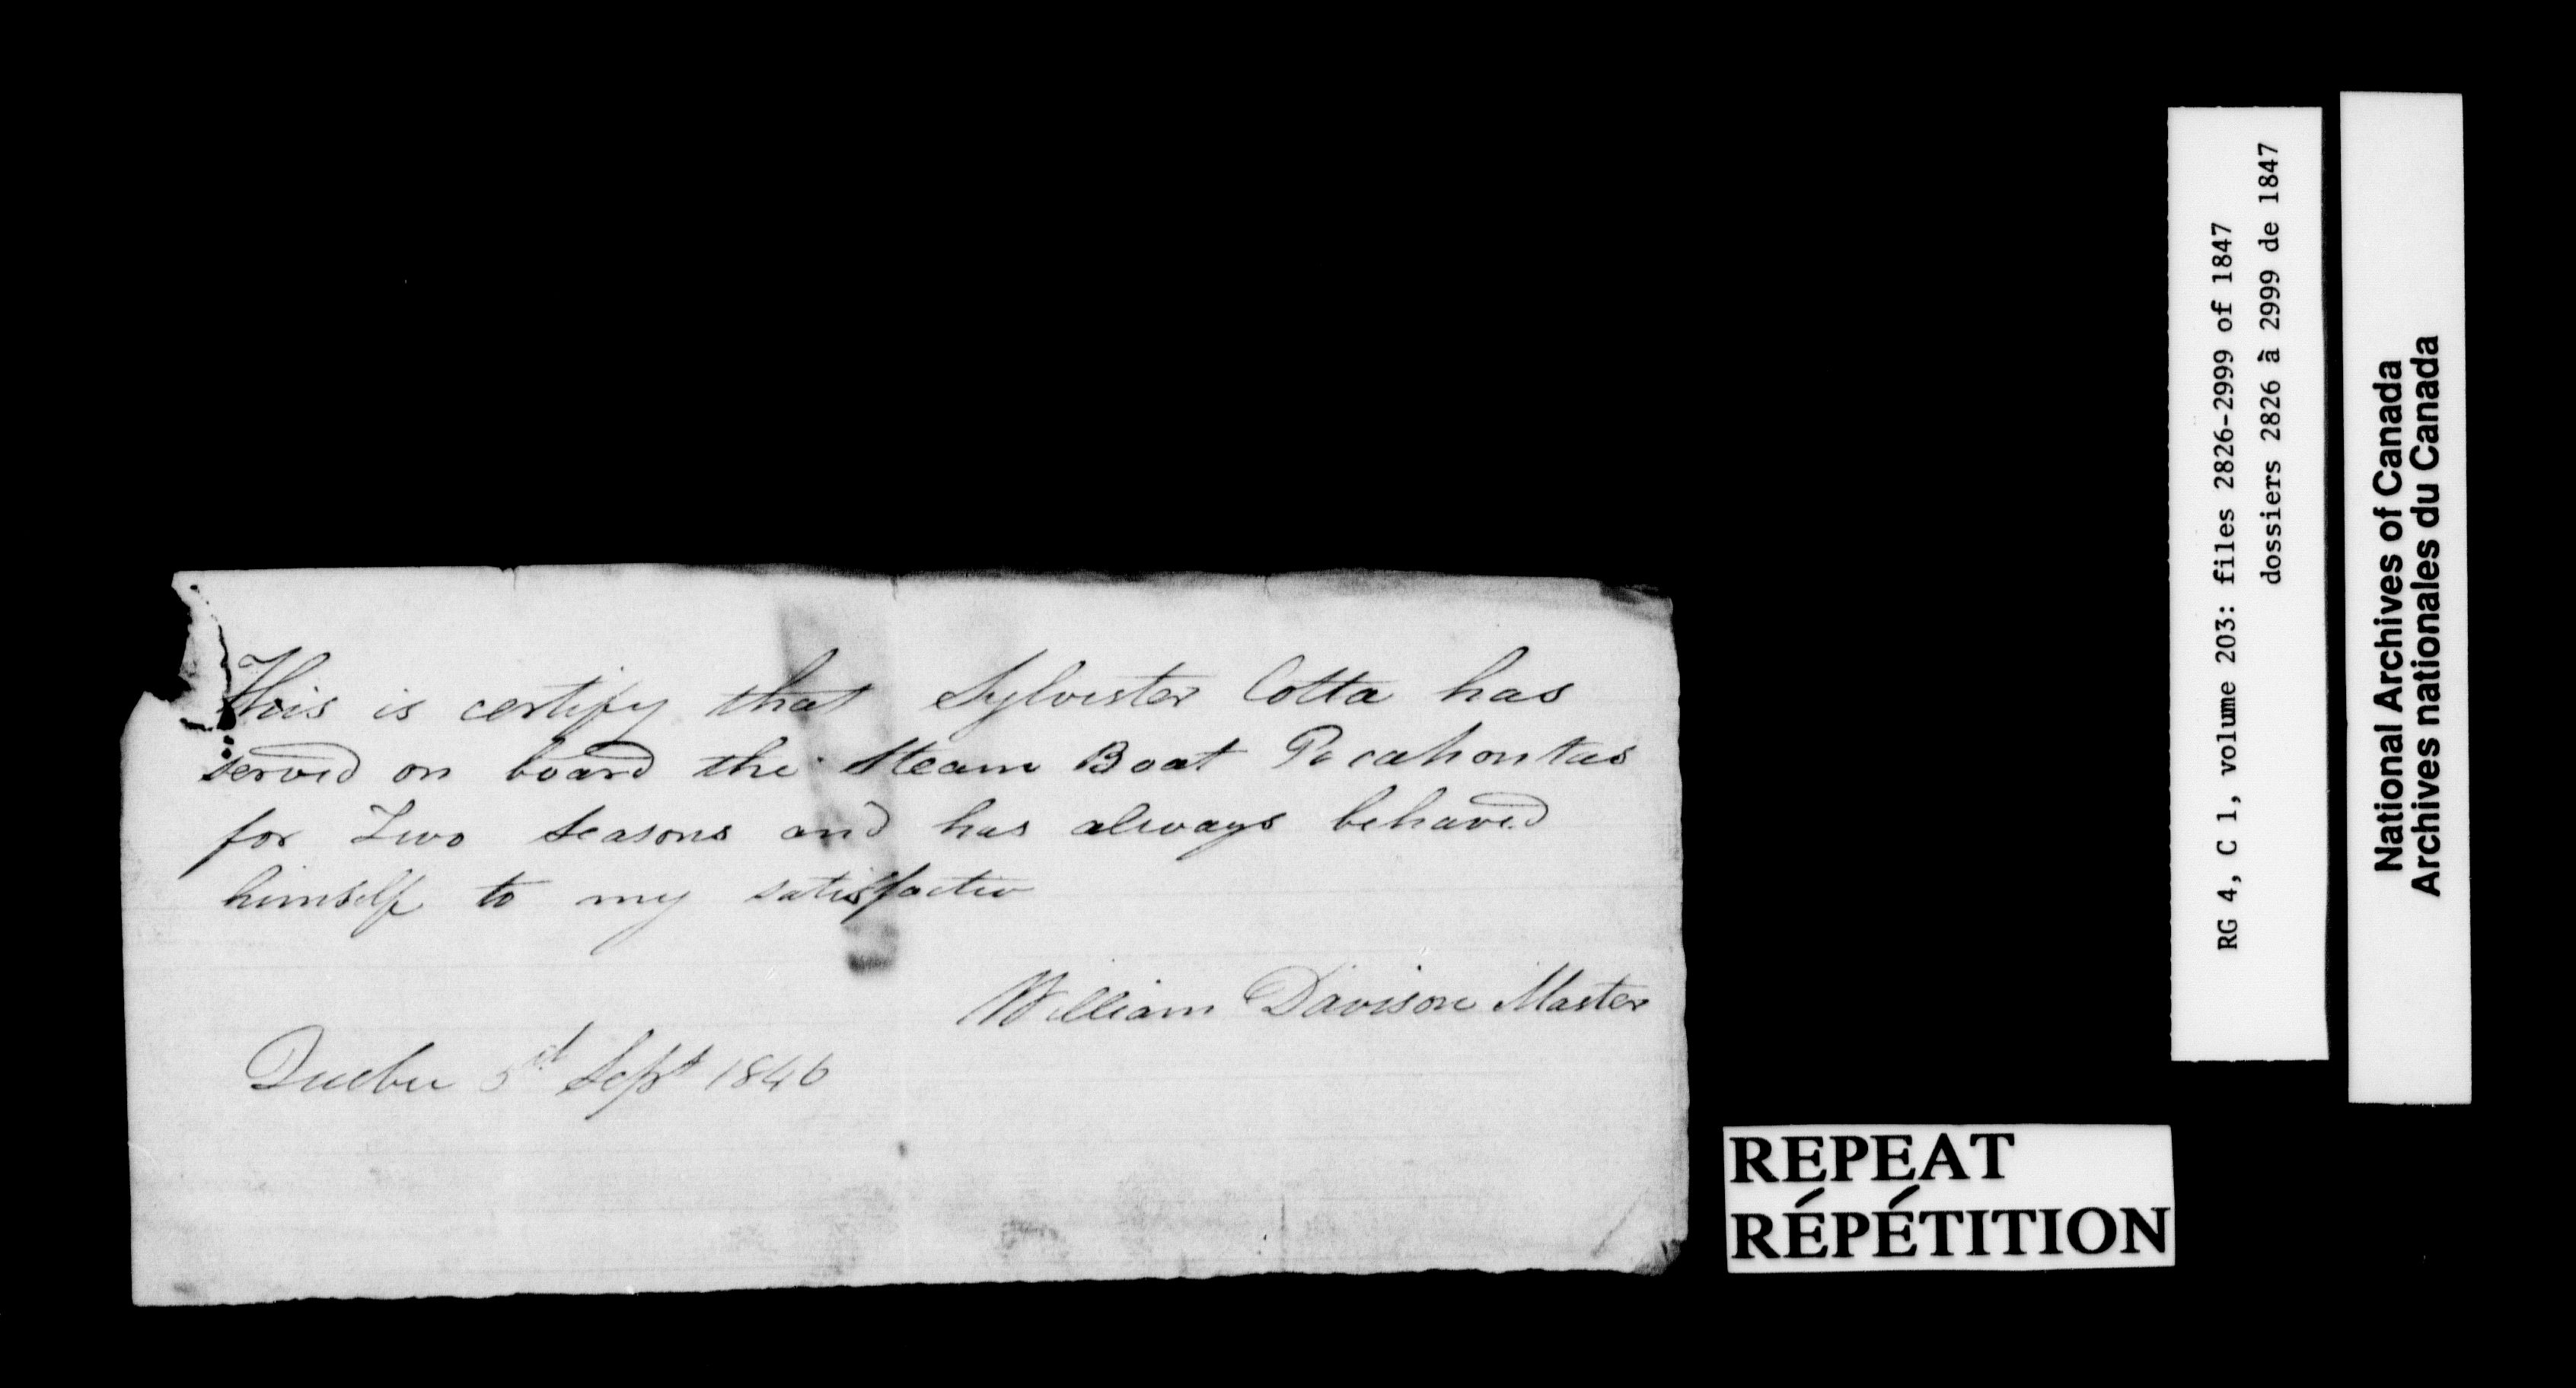 This is certify that Sylvester Cotta has
served on board the Steam Boat Pocahontas
for Two Seasons and has always behaved
himself to my satisfactio
William Davison Master
Quebec 5d Sept 1846
RG 4, C 1, volume 203: files 2826-2999 of 1847
dossiers 2826 à 2999 de 1847
National Archives of Canada
Archives nationales du Canada
REPEAT
RÉPÉTITION